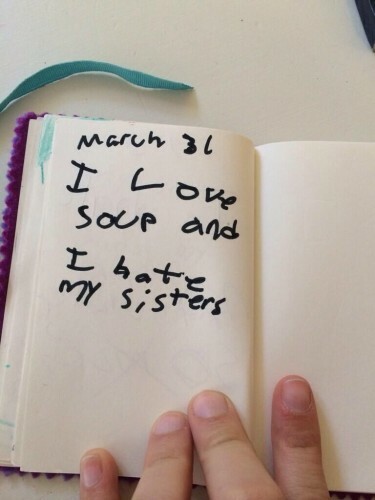 March 31
I Love
Soup and
I hate
My sisters